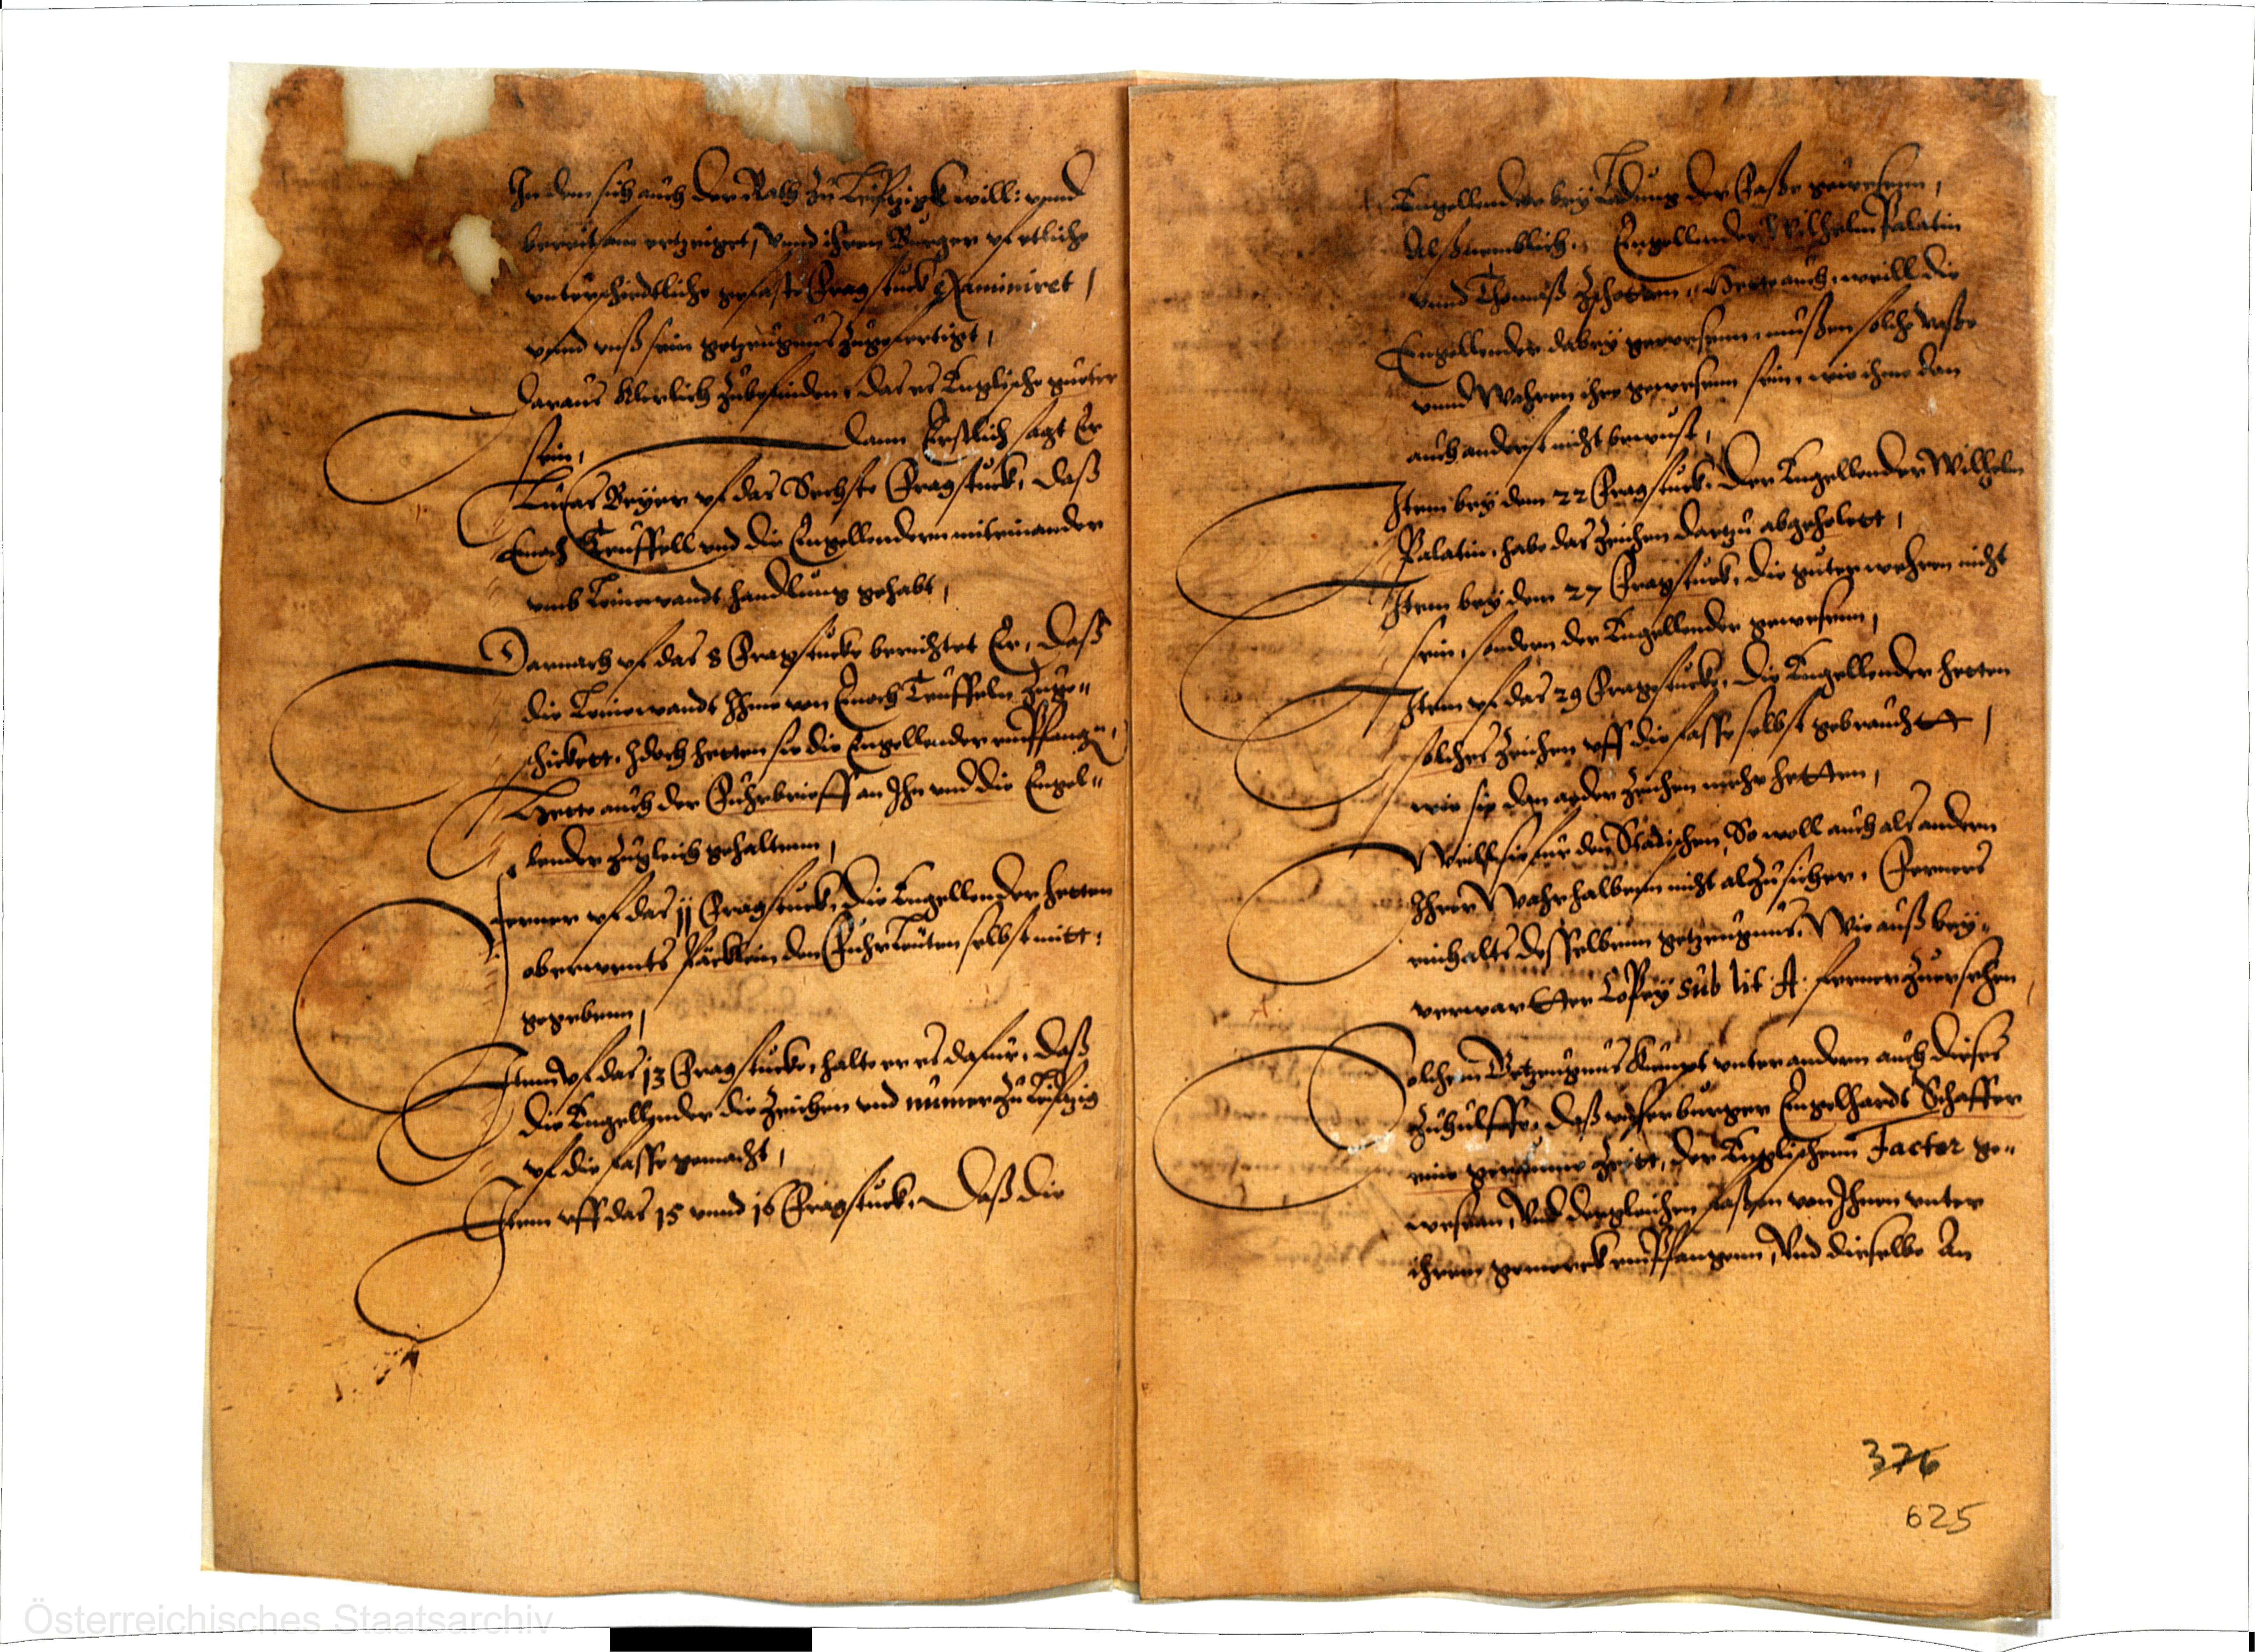 Indem sich auch der Rath zu Leiptzigk will: vnnd
bereitsam ertzeiget, vnnd ihren Burger vf etliche
vnterschiedtliche gefaste Fragstuck Examiniret,
vnnd vnß sein getzeugnus zugefertigt,
Daraus klerlich zubefinden, das es Englische gueter
sein, Dann Erstlich sagt Er
Lucas Beyer vf das Sechste Fragstuck, Daß
Enoch Teuffell vnd die Engellendern miteinander
vmb Leinewandt handlung gehabt,
Darnach vf das 8 Fragstucke berichtet Er, Daß
die Leinewandt Ihme von Enoch Teuffeln zuge„
schickett, Jdoch hetten sie die Engellender empfangen,
Hette auch der Fuhrbrieff an Ihn vnd die Engel„
lender zugleich gehaltenn,
Ferner vf das 11 Fragstuck, Die Engellender hetten
oberwents Päcklein den Fuhrleuten selbst mitt:
gegebenn,
Item vf das 13 Fragstucke, halte er es dafur, Daß
die Engellender die Zeichen vnd numer zu Leiptzig
vf die fasse gemacht,
Item vff das 15 vnnd 16 Fragstuck, Daß die
Engellender bey Ladung der Faße gewesenn,
Als nemblich, Engellender Wilhelm Palatin
vnnd Thomaß Hette auch, weill die
Engellender dabey gewesenn, mußen solche vaße
vnnd Wahren ihre gewesenn sein, wie ihme dan
auch anderst nicht bewust,
Item bey dem 22 Fragstuck, Der Engellender Wilhelm
Palatin, habe das Zeichen dartzu abgeholett,
Item bey dem 27 Fragstuck, die guter wehren nicht
sein, sondern der Engellender gewesenn,
Item vf das 29 Fragstucke, Die Engellender hetten
solches Zeichen vff die fasse selbst gebraucht,
wie sie dan ander Zeichen mehr hetten,
Weill sie fur den Stadischen, So woll auch als andern
Ihrer Wahr halbenn nicht alzu sicher, Ferners
einhalts desselbenn getzeugnus, Wie auß bey„
verwartter Copey sub lit: A. ferner zuersehen,
A.
Solchem Getzeugnus kumpt vnter andern auch dieses
zuhulffe, Daß vnser burger Engelhardt Schaffer
eine geraume Zeitt, der Englischenn Factor ge„
wesenn, Vnd dergleichen fassen von Ihnen vnter
ihrem gemerck empfangenn, Vnd dieselbe An
376
625
Österreichisches Staatsarchiv